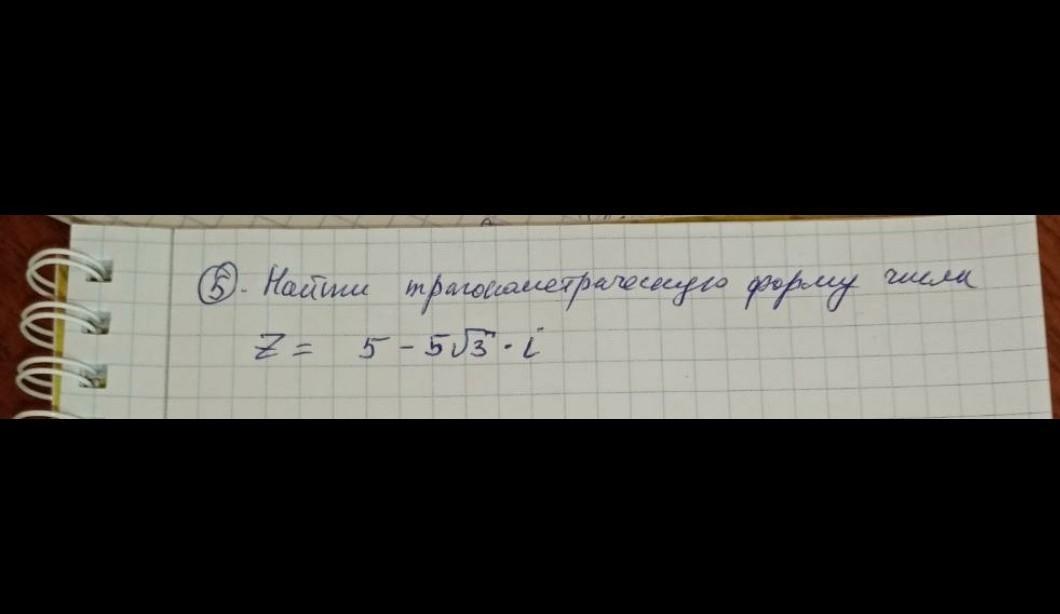 ⑤. Найти тригонометрическую форму числа
z = 5 - 5√3 · i